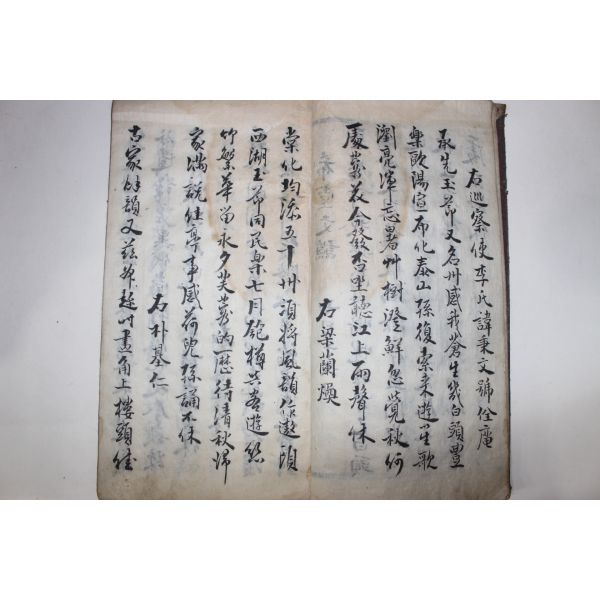 右巡察使李氏諱秉文號俭庵
承先玉節又名州感我蒼生幾白頭豊
樂歐陽宣布化泰山孫復索来遊笙歌
瀏亮渾忘暑艸樹澄鮮忽覺秋何
處藂花今發否坐聽江上雨聲休
右梁蘭煥
棠化均添五十州須將風韻作遨頭
西湖玉節同民樂七月匏樽共客遊
竹繁華留永夕芙蓉的歷待清秋歸
家满說佳亭事感荷兒孫誦不休
右朴基仁
古家餘韻又玆 畫角上樓頭佳